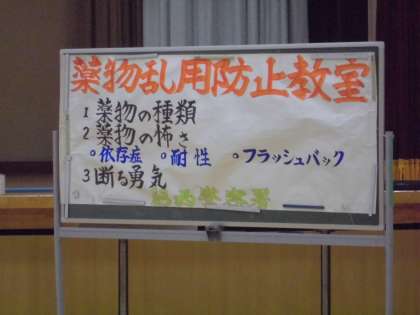 薬物乱用防止教室
1 薬物の種類
2 薬物の怖さ
。依存症 。耐性 。フラッシュバック
3 断る勇気
警察署